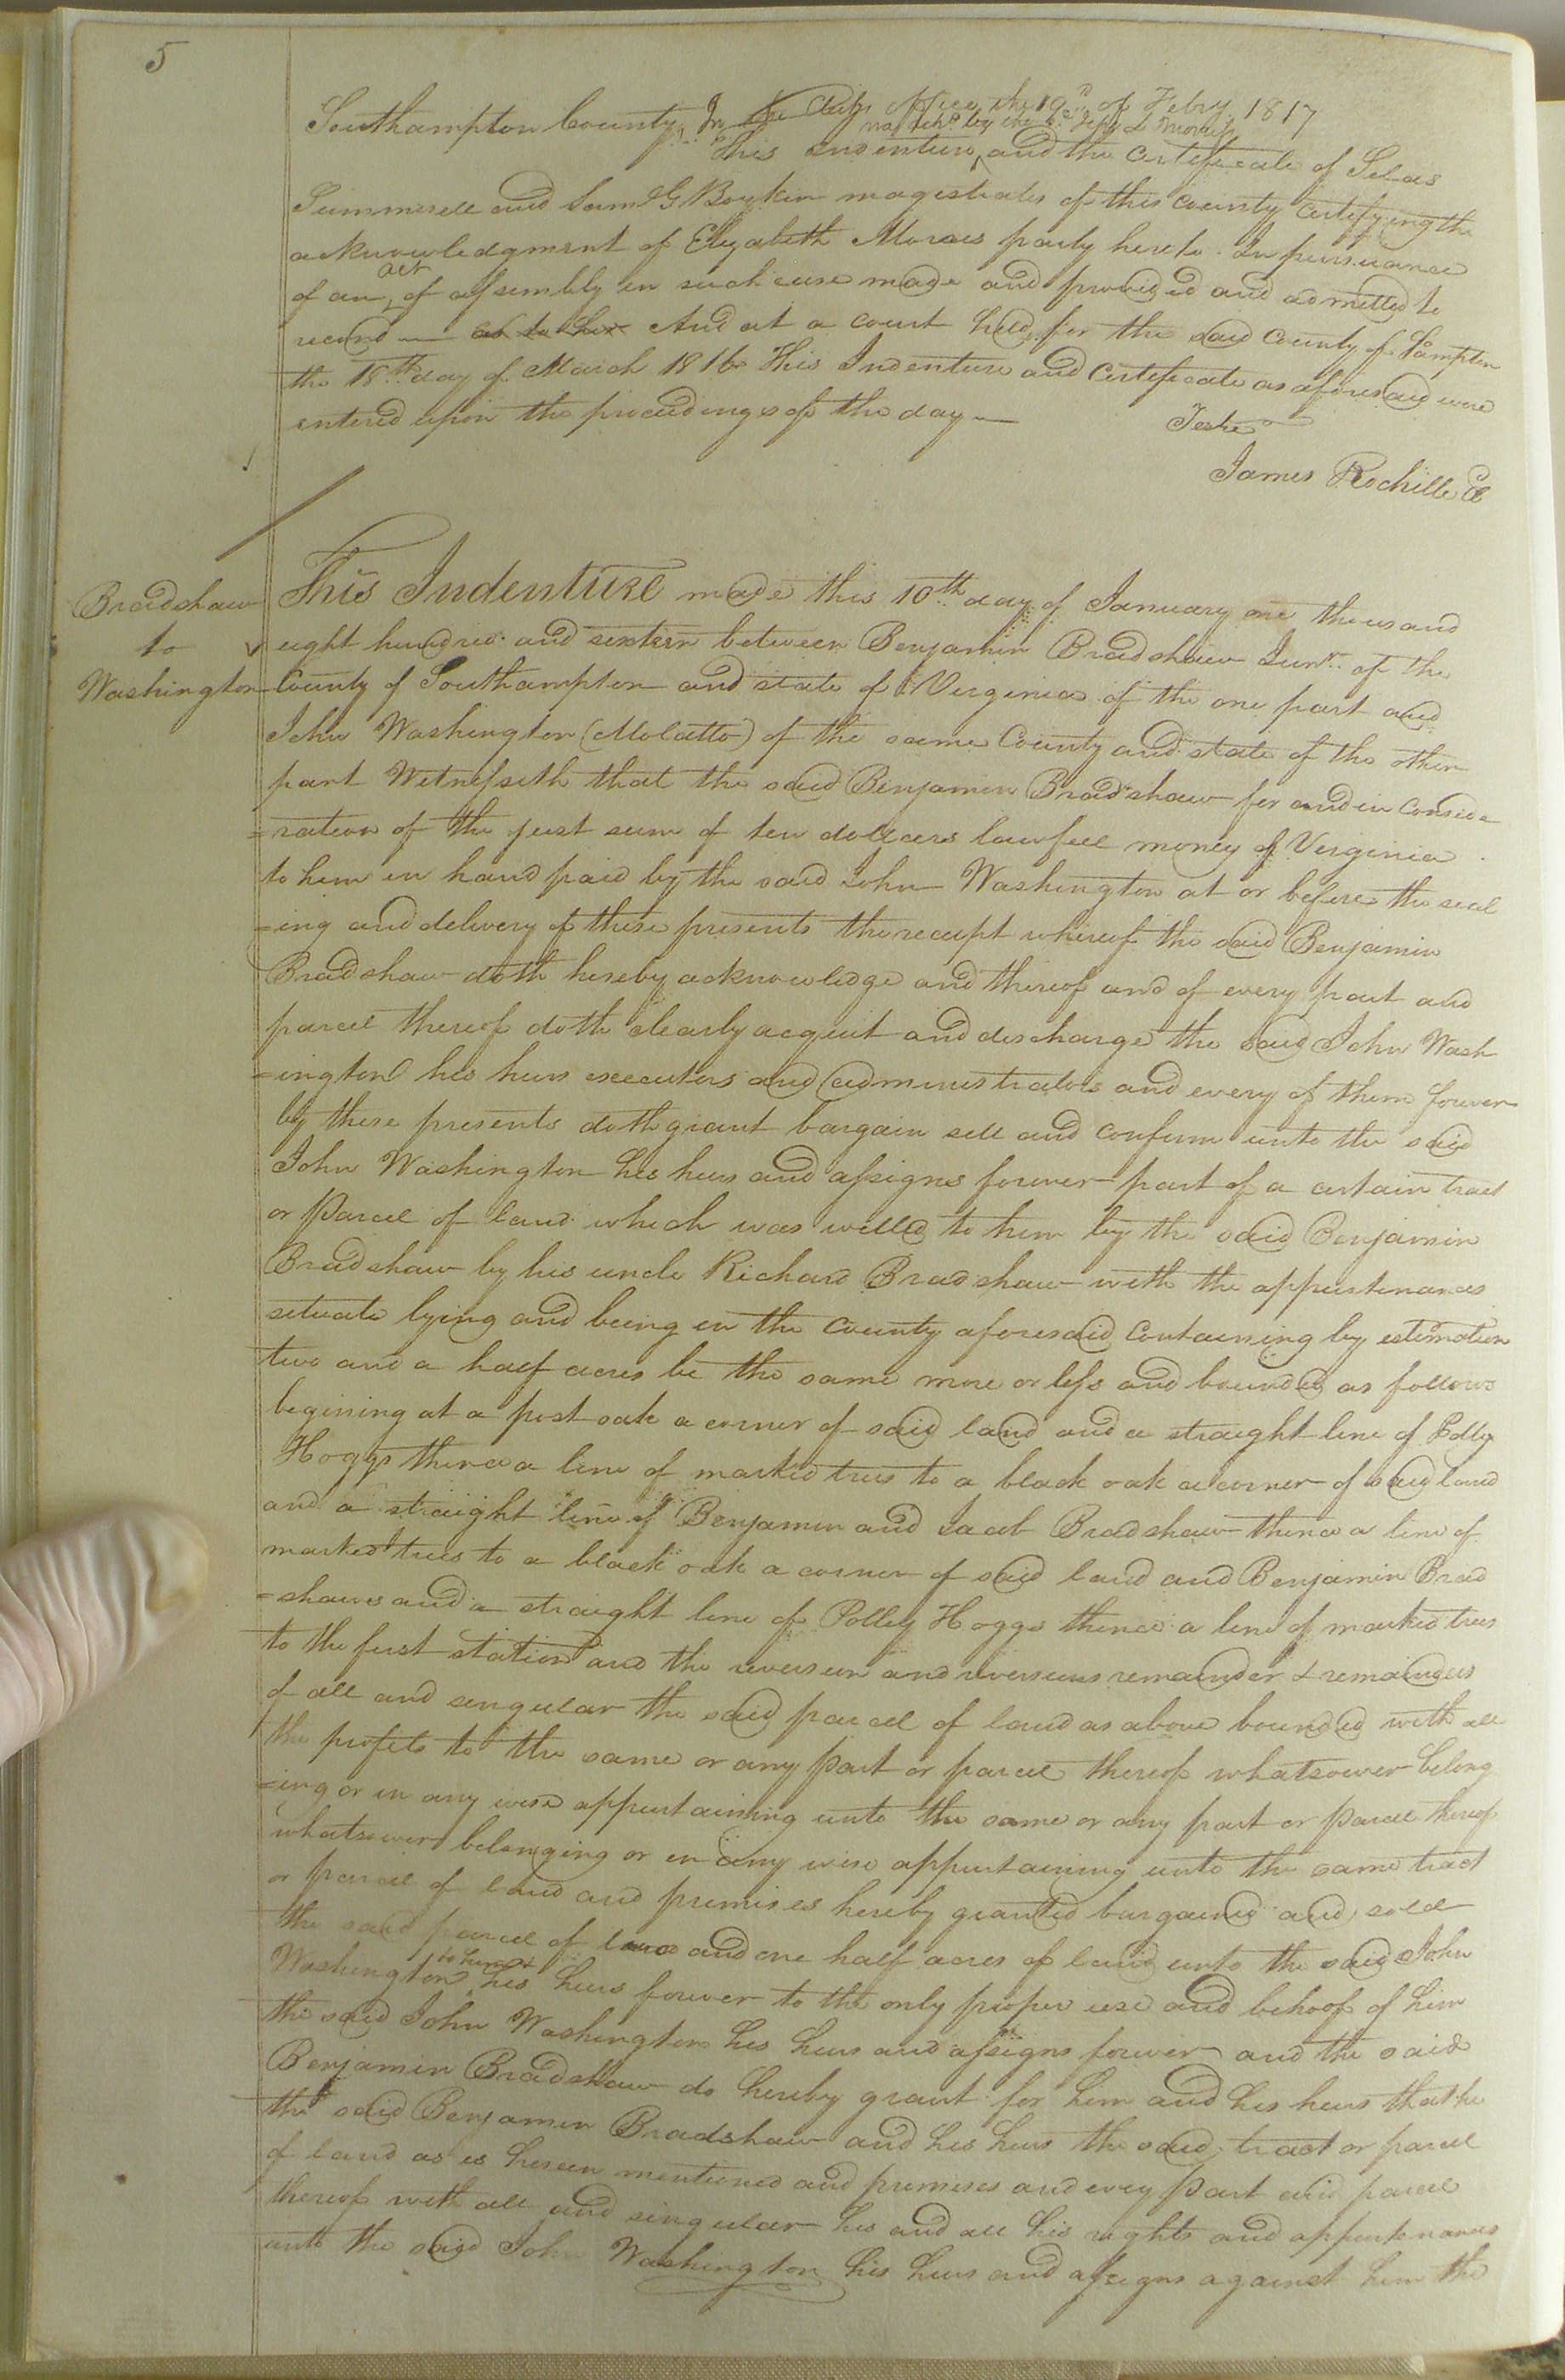 5
Southampton County In the Clks office the 19th of Febry 1817
This Indenture and the Certificate of Silas
Summerell and Saml G Boykin magistrates of this county certifying the
acknowledgment of Elizabeth Moraes party hereto. In pursuance
of an act of assembly in such case made and provided and admitted to
record — as to her And at a court held for the said County of Sampton
the 18th day of March 1816 This Indenture and Certificate as aforesaid were
entered upon the proceedings of the day —
Teste
James Rochelle C
Bradshaw
to
Washington
This Indenture made this 10th day of January one thousand
eight hundred and sixteen between Benjamin Bradshaw Junr. of the
County of Southampton and state of Virginia of the one part and
John Washington (Molatto) of the same County and state of the other
part Witnesseth that the said Benjamin Bradshaw for and in conside
=ration of the just sum of ten dollars lawfull money of Virginia
to him in hand paid by the said John Washington at or before the seal
=ing and delivery of these presents the receipt whereof the said Benjamin
Bradshaw doth hereby acknowledge and thereof and of every part and
parcel thereof doth clearly acquit and discharge the said John Wash
=ington his heirs executors and administrators and every of them forever
by these presents doth grant bargain sell and confirm unto the said
John Washington his heirs and assigns forever part of a certain tract
or Parcel of land which was willed to him by the said Benjamin
Bradshaw by his uncle Richard Bradshaw with the appurtenances
situate lying and being in the County aforesaid Containing by estimation
two and a half acres be the same more or less and bounded as follows
begining at a post oak a corner of said land and a straight line of Polly
Hoggs thence a line of marked trees to a black oak a corner of said land
and a straight line of Benjamin and Jacob Bradshaw thence a line of
marked trees to a black oak a corner of said land and Benjamin Brad
=shaws and a straight line of Polley Hoggs thence a line of marked trees
to the first station and the reversion and reversions remainder & remainders
of all and singular the said parcel of land as above bounded with all
the profits to the same or any part or parcel thereof whatsoever belong
=ing or in any wise appertaining unto the same or any part or Parcel thereof
whatsoever belonging or in any wise appertaining unto the same tract
or parcel of land and premises hereby granted bargained and sold
the said parcel of and one half acres of land unto the said John
Washington to him & his heirs forever to the only proper use and behoof of him
the said John Washington his heirs and assigns forever and the said
Benjamin Bradshaw do hereby grant for him and his heirs that he
the said Benjamin Bradshaw and his heirs the said tract or parcel
of land as is herein mentioned and premises and every Part and parcel
thereof with all and singular his and all his rights and appurtenances
unto the said John Washington his heirs and assigns against him the